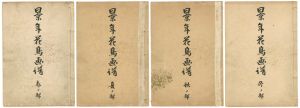 景年花鳥画譜
春ノ部
景年花鳥画譜
夏ノ部
景年花鳥画譜
秋ノ部
景年花鳥画譜
冬ノ部